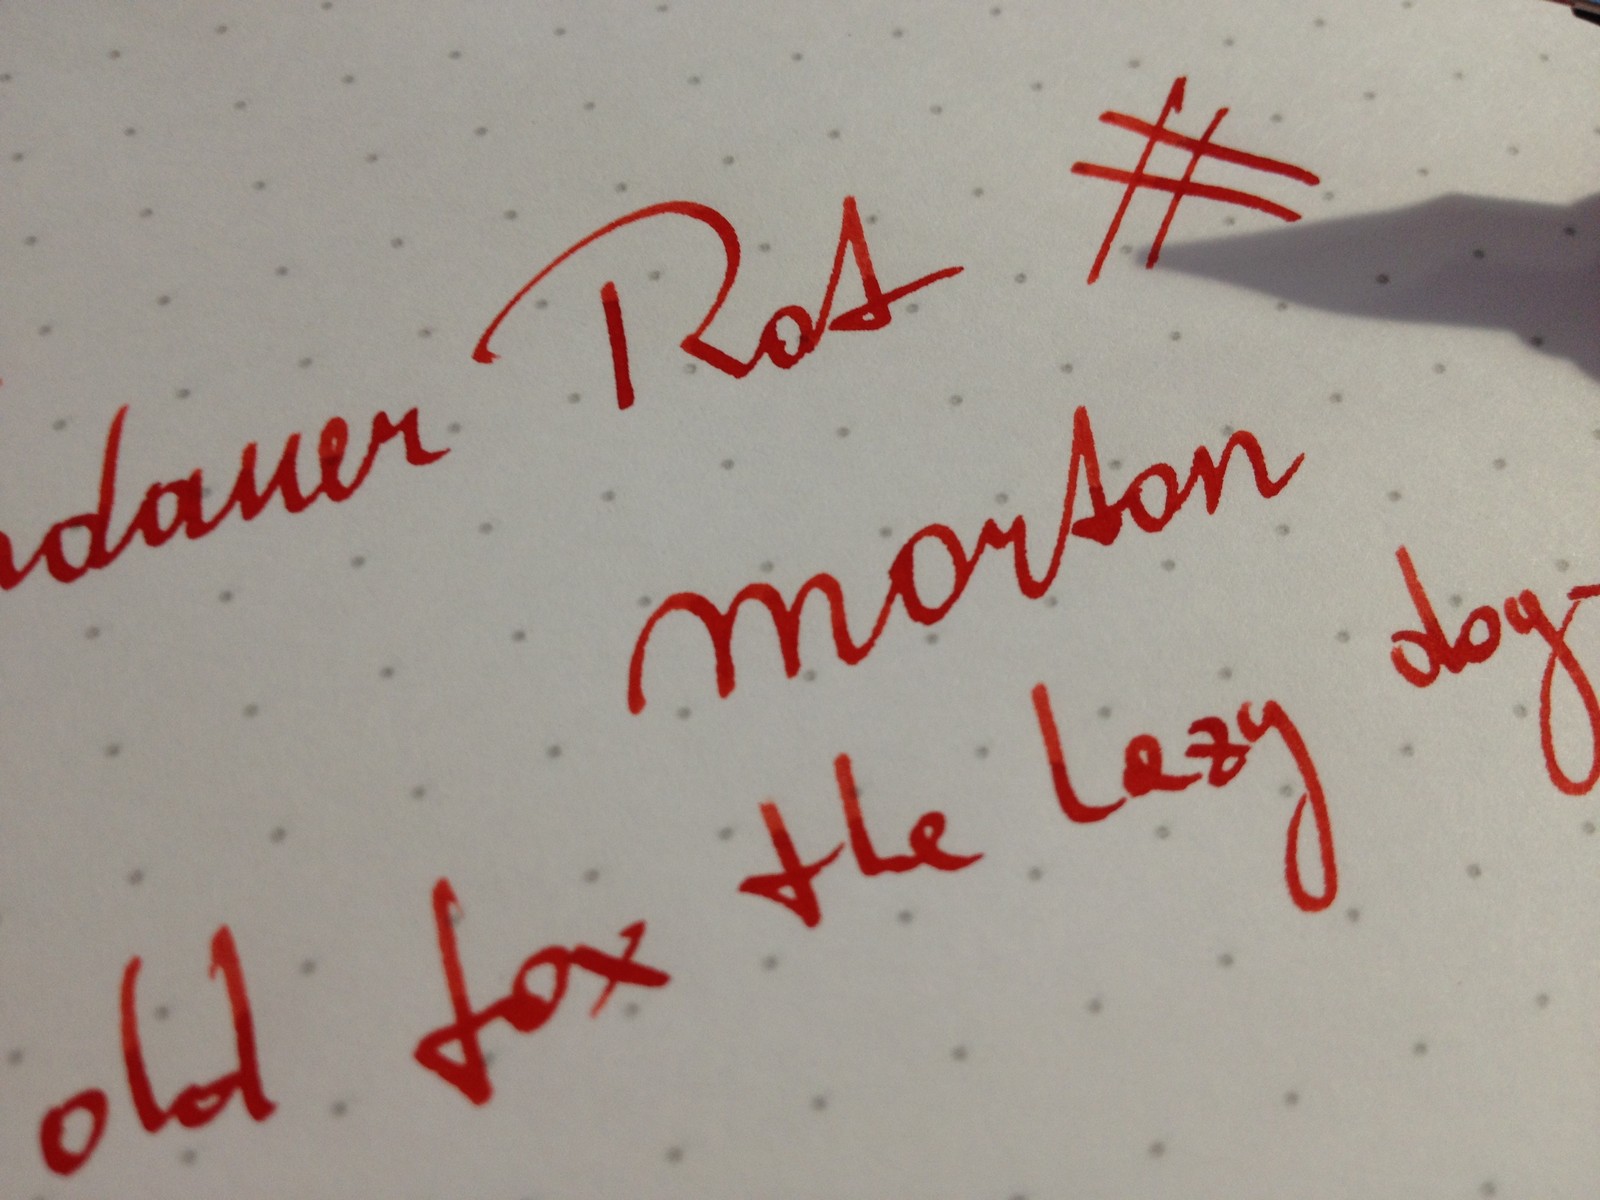 ndauer Rot #
morton
old fox the lazy dog